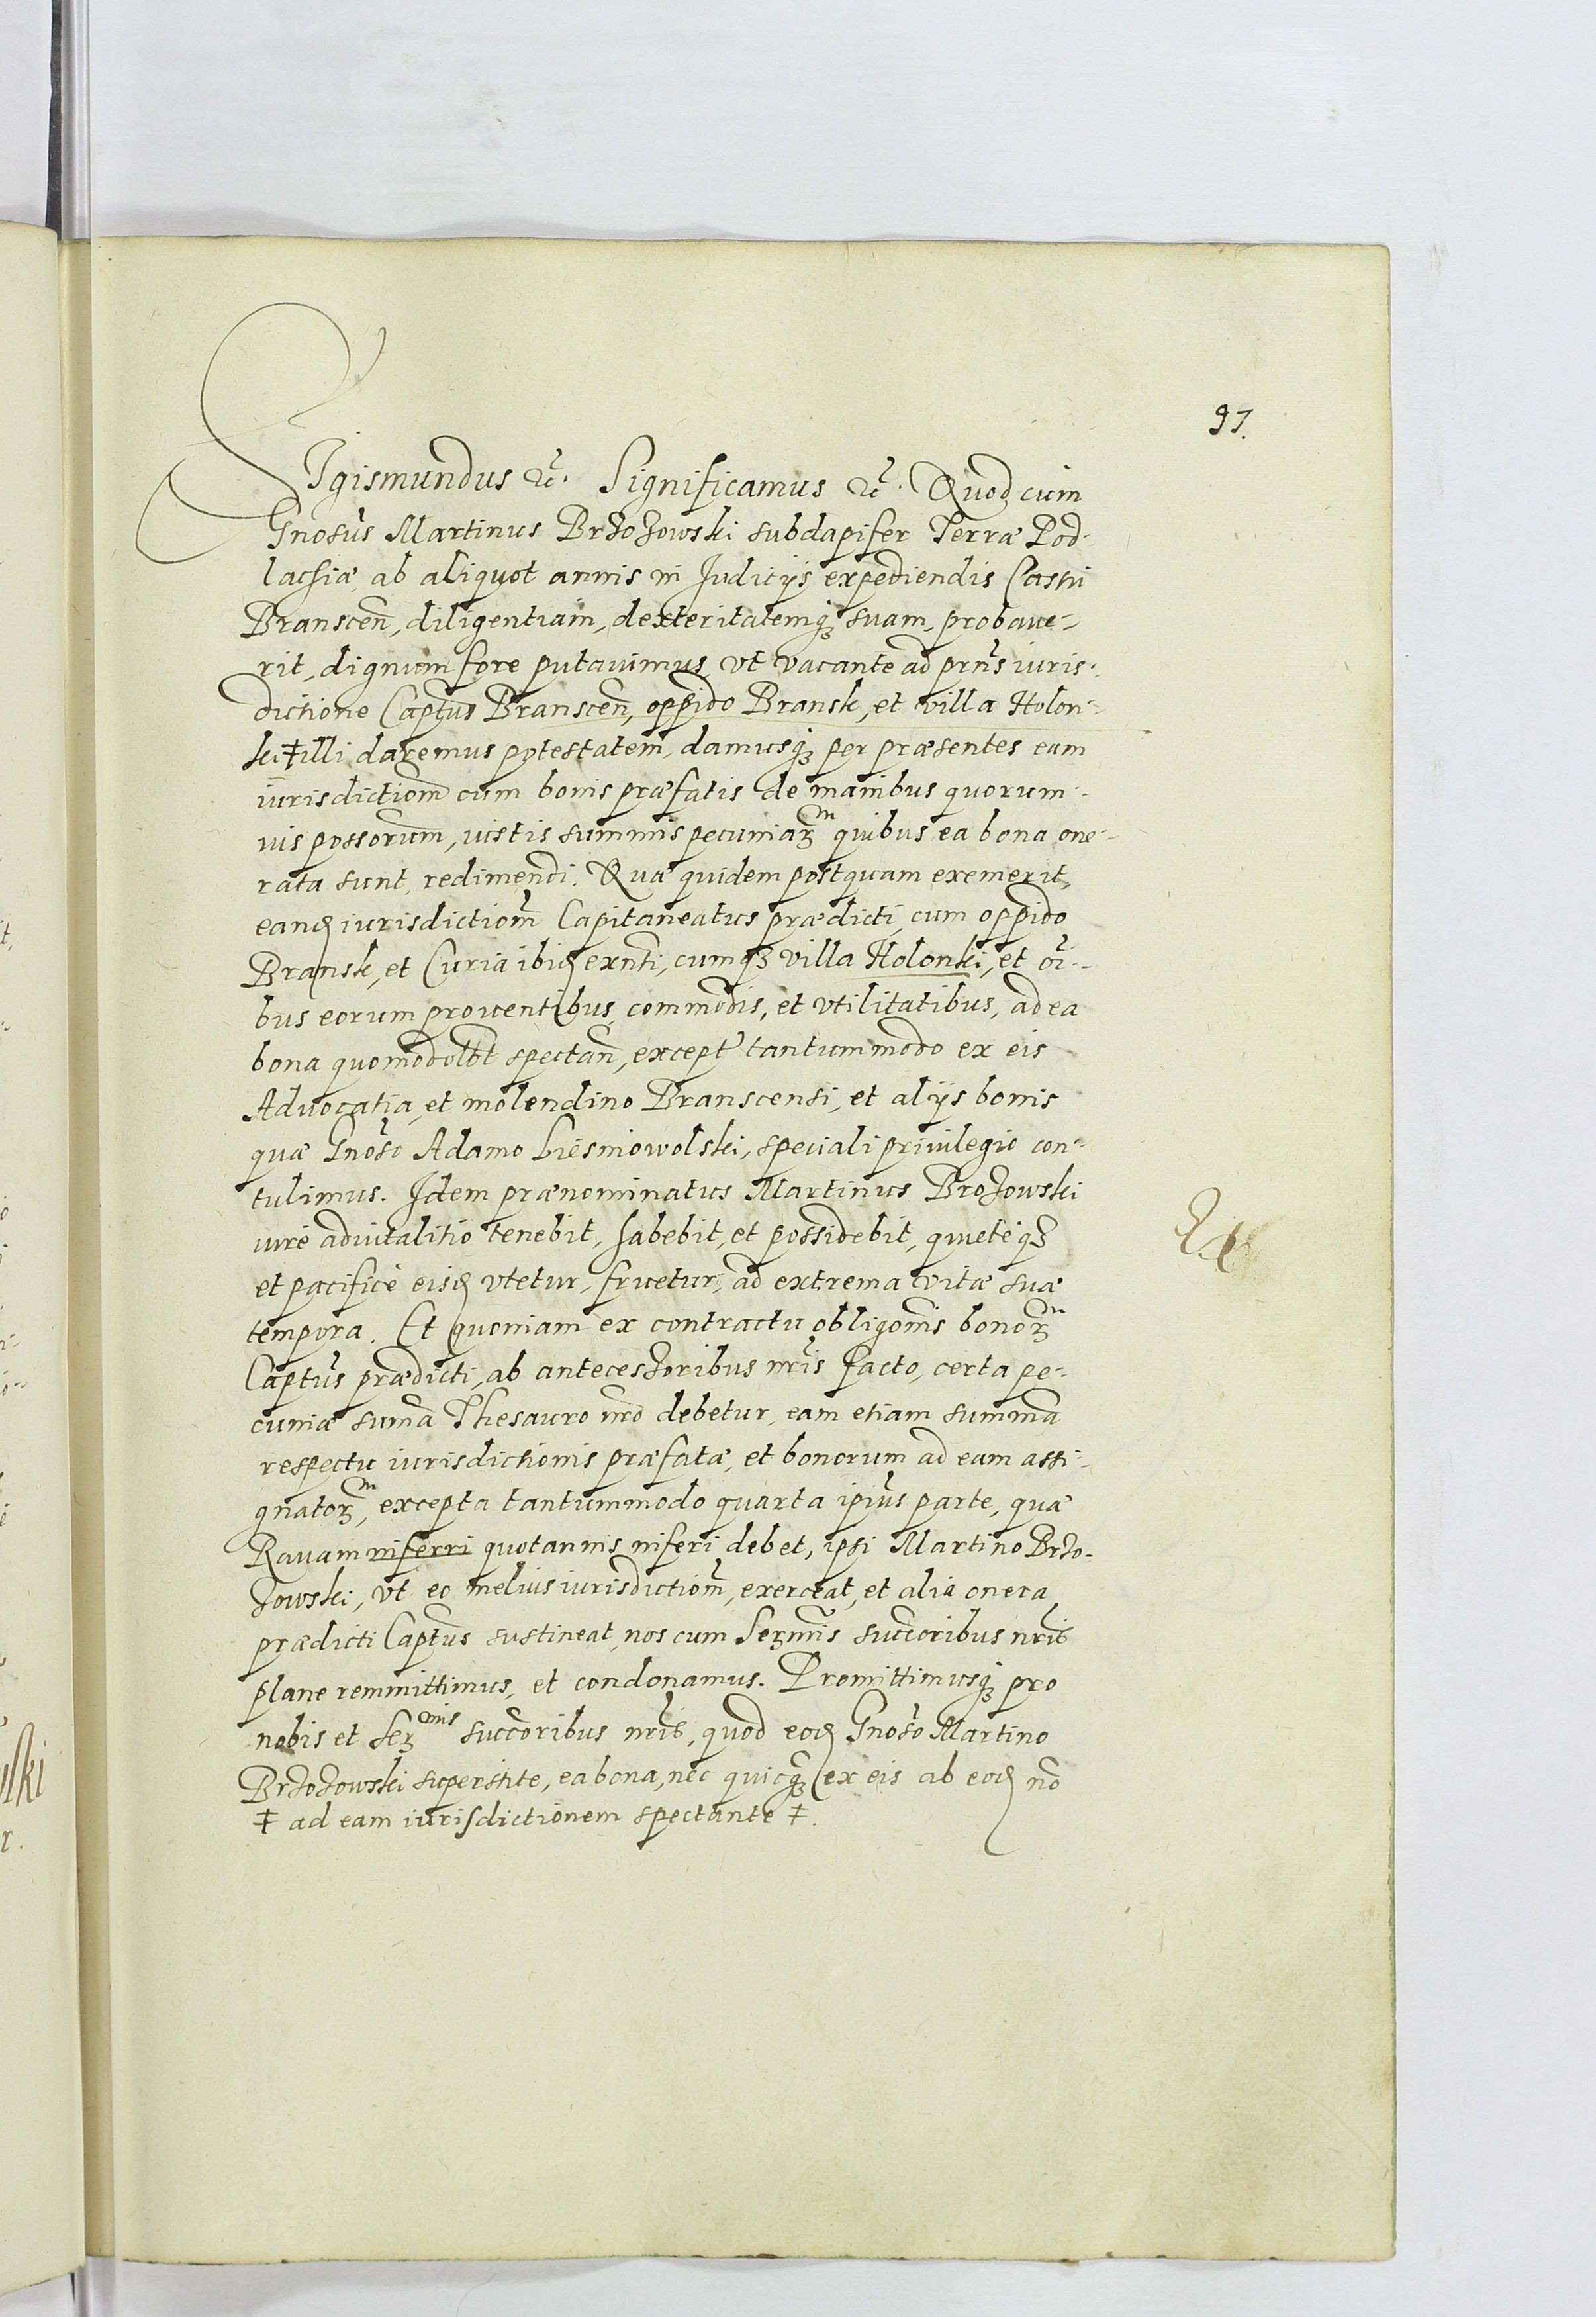 97.
Sigismundus etc. Significamus etc. Quod cum
Gnosus Martinus Brzozowski subdapifer Terræ Pod-
lachiæ, ab aliquot annis in Judicijs expediendis Castri
Branscen, diligentiam, dexteritatemq suam, probave-
rit, dignum fore putavimus, vt vacante ad prns iuris-
dictione Captus Branscen, oppido Bransk, et villa Holon-
ki ‡ illi daremus potestatem, damusq per præsentes eam
iurisdictiom cum bonis præfatis de manibus quorum-
vis possorum, iustis summis pecuniarm quibus ea bona one-
rata sunt, redimendi. Quæ quidem postquam exemerit,
eand iurisdictiom Capitaneatus prædicti, cum oppido
Bransk, et Curia ibid exnti, cumq villa Holonki, et oi-
bus eorum proventibus, commodis, et vtilitatibus, ad ea
bona quomodolbt spectan, except tantummodo ex eis
Advocatia, et molendino Branscensi, et alijs bonis
quæ Gnoso Adamo Liesniowolski, speciali privilegio con-
tulimus. Idem prænominatus Martinus Brozowski
iure advitalitio tenebit, habebit, et possidebit, quieteq
et pacifice eisd vtetur, fruetur, ad extrema vitæ suæ
tempora. Et quoniam ex contractu obligonis bonorm
Captus prædicti, ab antecessoribus nris facto, certa pe-
cuniæ suma Thesauro nro debetur, eam etiam summa
respectu iurisdictionis præfatæ, et bonorum ad eam assi-
gnatorm, excepta tantummodo quarta ipius parte, quæ
Ravam inferri quotannis inferi debet, ipsi Martino Brzo-
zowski, vt eo melius iurisdictiom, exerceat, et alia onera
prædicti Captus sustineat, nos cum Sermis succoribus nris
plane remmittimus, et condonamus. Promittimusq pro
nobis et Sermis succoribus nris, quod eod Gnoso Martino
Brzozowski superstite, ea bona, nec quicq ex eis ab eod no
‡ ad eam iurisdictionem spectante ‡.